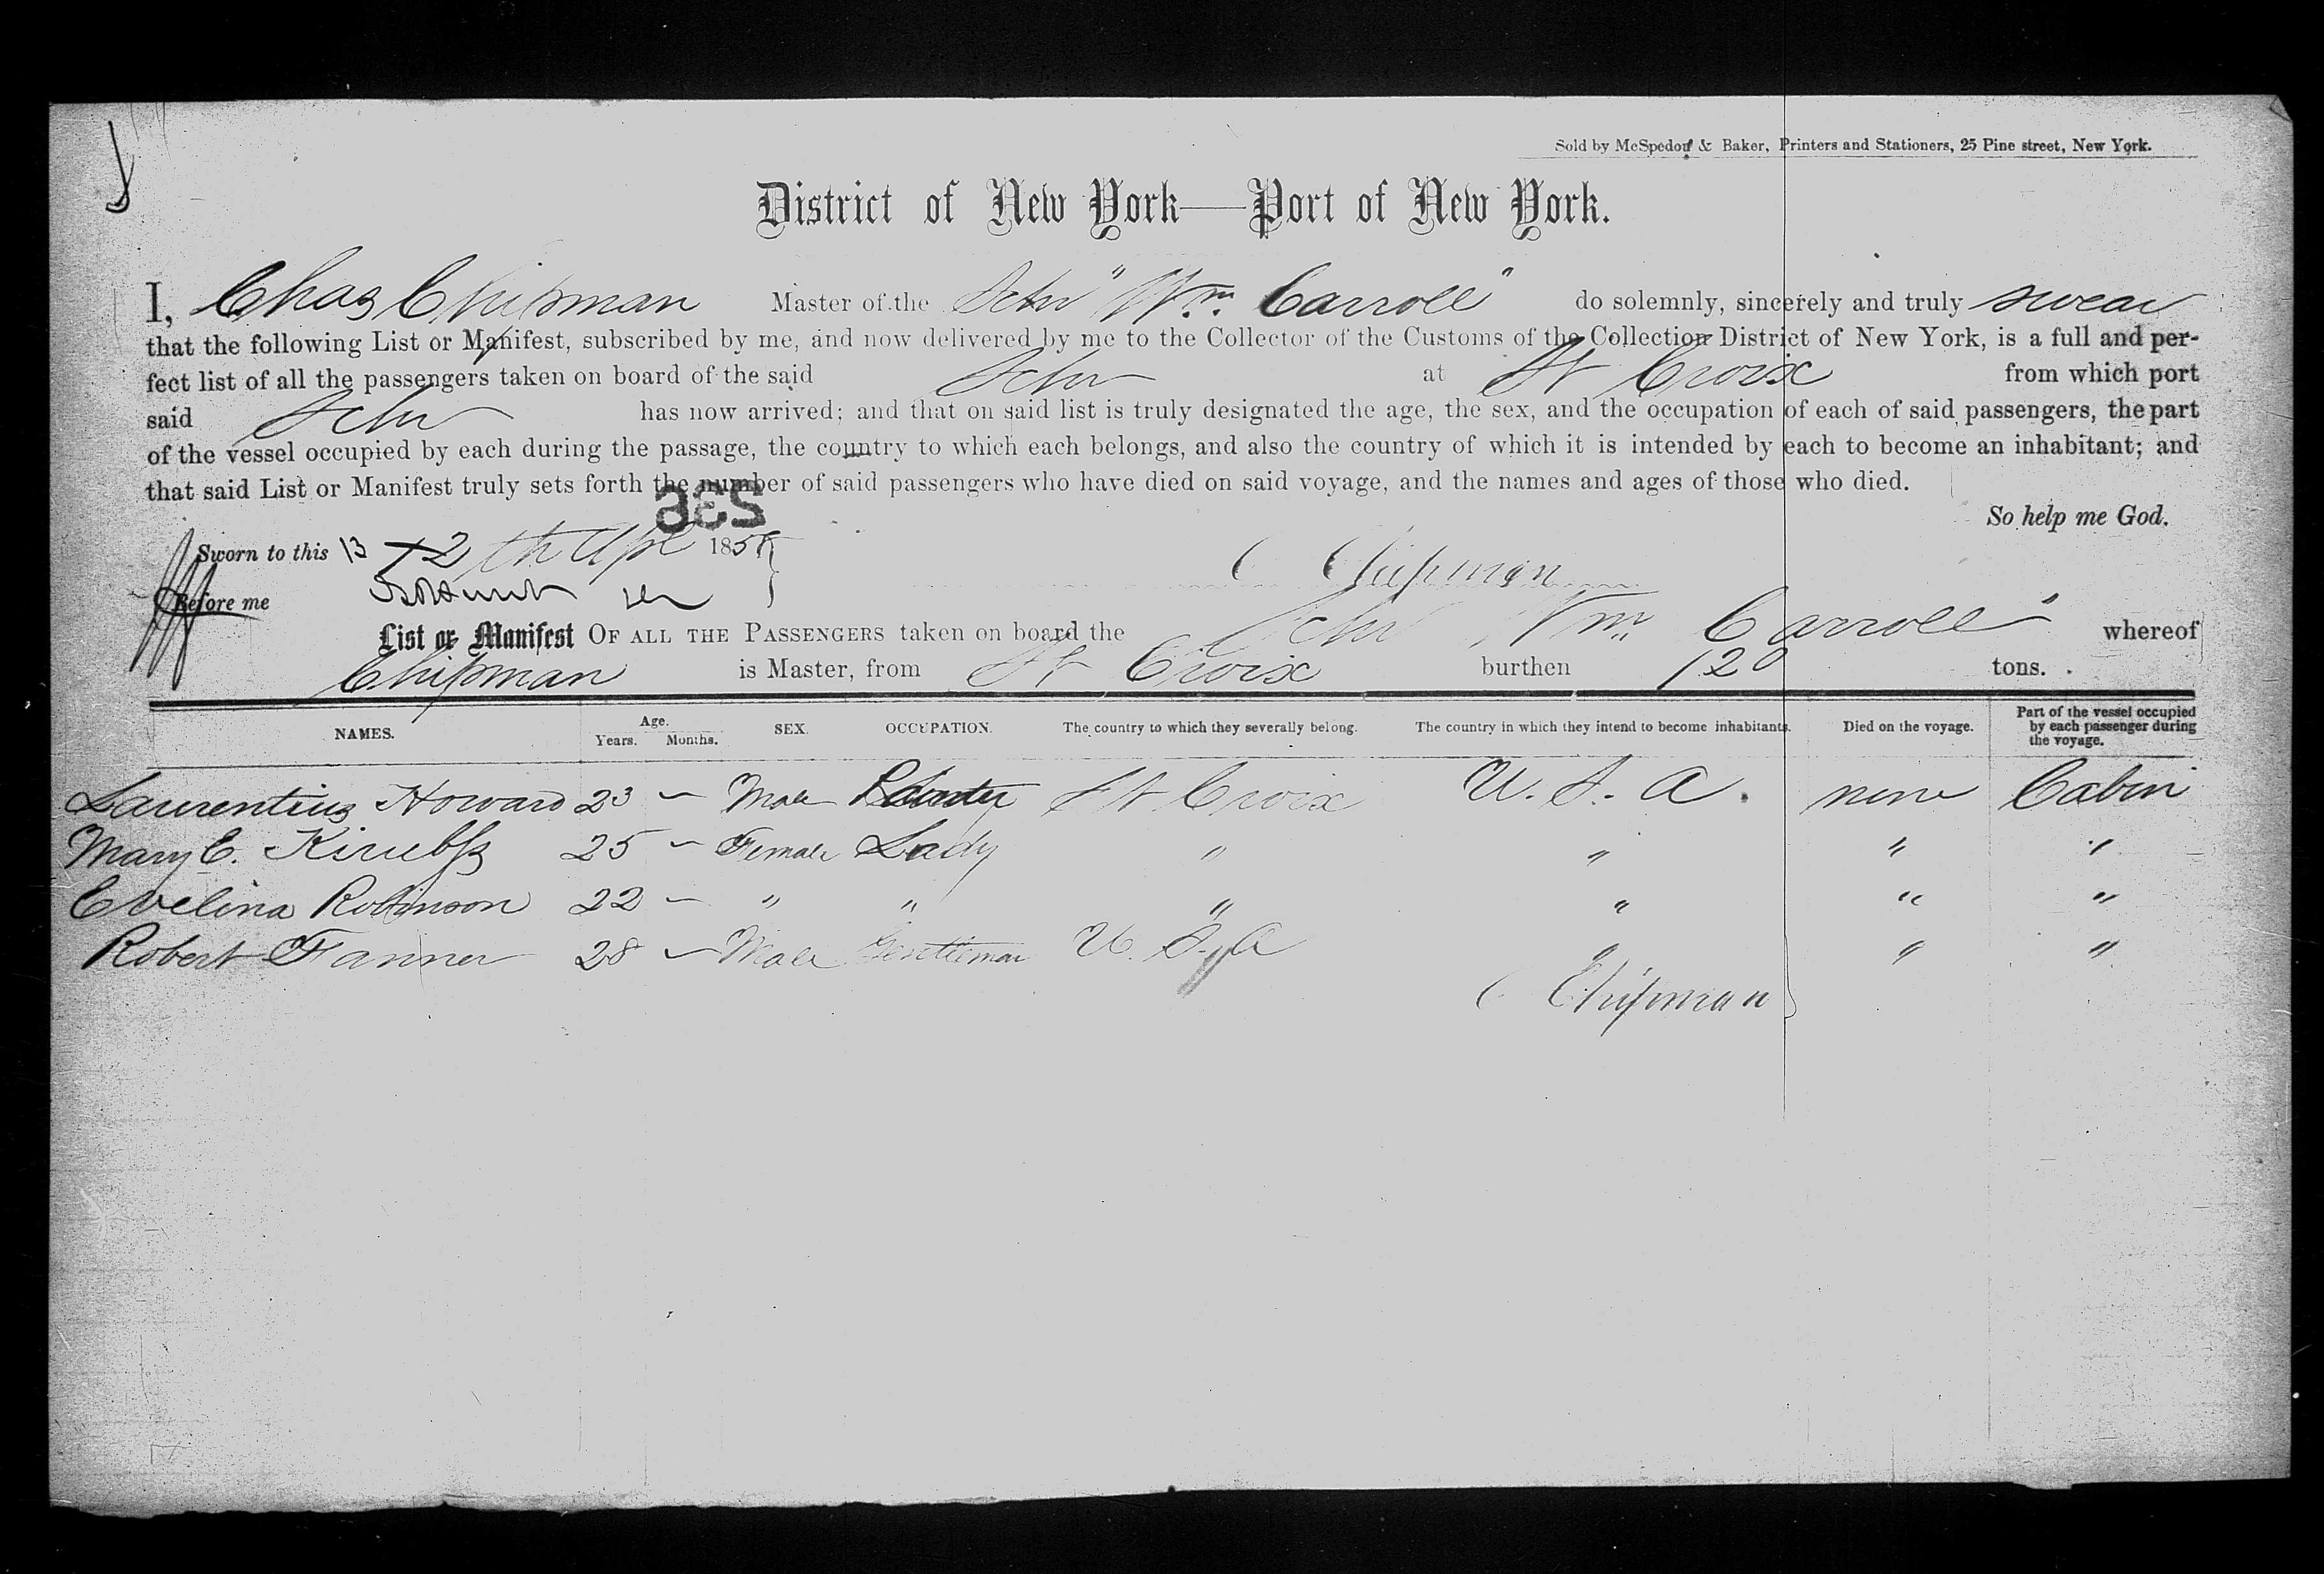 Sold by McSpedon & Baker, Printers and Stationers, 25 Pine street, New York.
District of New York—Port of New York.
I, Chas Chipman Master of the Schr "Wm. Carroll" do solemnly, sincerely and truly swear
that the following List or Manifest, subscribed by me, and now delivered by me to the Collector of the Customs of the Collection District of New York, is a full and per-
fect list of all the passengers taken on board of the said Schr at St Croix from which port
said Schr has now arrived; and that on said list is truly designated the age, the sex, and the occupation of each of said passengers, the part
of the vessel occupied by each during the passage, the country to which each belongs, and also the country of which it is intended by each to become an inhabitant; and
that said List or Manifest truly sets forth the number of said passengers who have died on said voyage, and the names and ages of those who died.
236
So help me God.
Sworn to this 13 12 th Apl 185
C Chipman
Before me
List or Manifest OF ALL THE PASSENGERS taken on board the Schr Wm. Carroll" whereof
Chipman is Master, from St Croix burthen 120 tons.
NAMES. Age. Years. Months. SEX. OCCUPATION. The country to which they severally belong. The country in which they intend to become inhabitants. Died on the voyage. Part of the vessel occupied by each passenger during the voyage.
Laurentius Howard 23 - Male St Croix U. S. A. none Cabin
Mary E. 25 - Female Lady " " " "
Evelina Robinson 22 - " " " " " "
Robert Fanner 28 - Male Gentleman U. S. A " " "
C Chipman